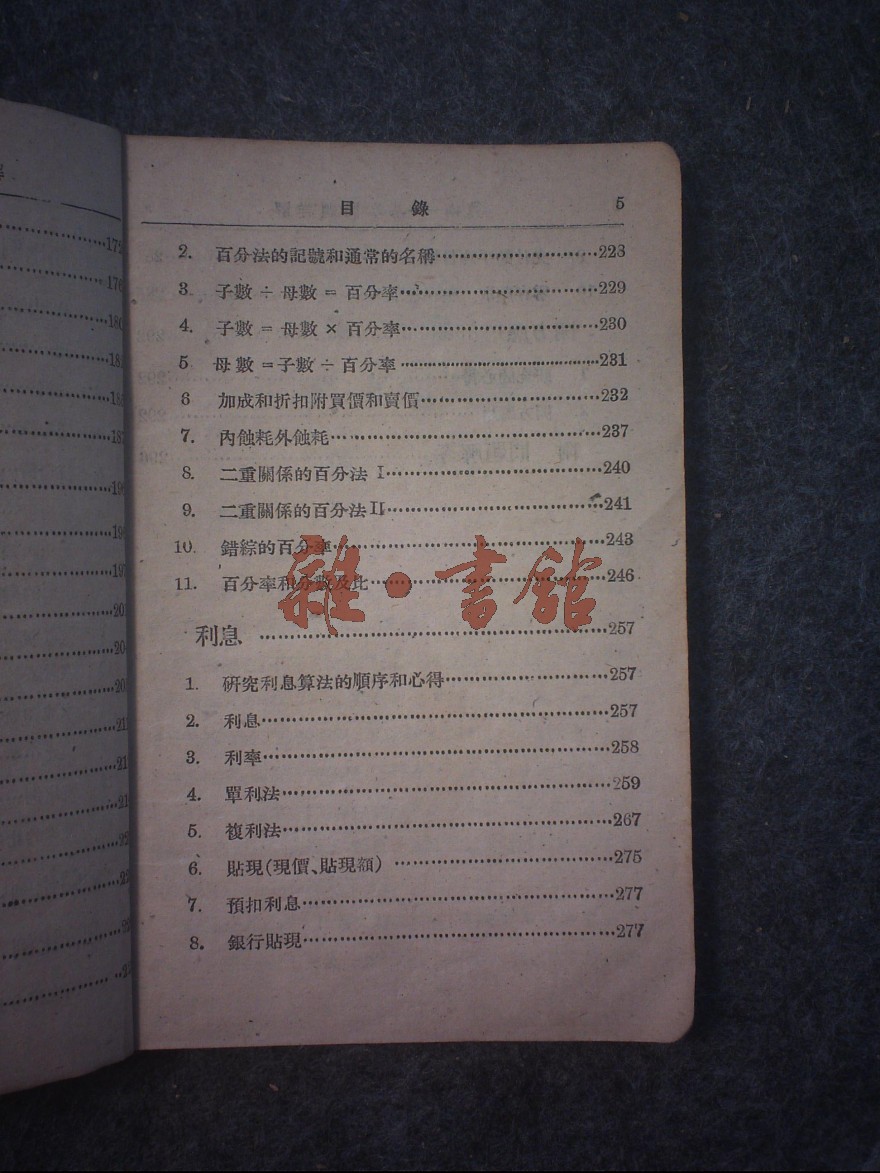 目 錄 5
2. 百分法的記號和通常的名稱……………………228
3. 子數 ÷ 母數 = 百分率……………………229
4. 子數 = 母數 × 百分率……………………230
5 母數 = 子數 ÷ 百分率……………………231
6 加成和折扣附買價和賣價……………………232
7. 內蝕耗外蝕耗……………………237
8. 二重關係的百分法 I……………………240
9. 二重關係的百分法 II……………………241
10. 錯綜的百分率……………………243
11. 百分率和分數及比……………………246
雜·書館
利息 ……………………257
1. 研究利息算法的順序和心得……………………257
2. 利息……………………257
3. 利率……………………258
4. 單利法……………………259
5. 複利法……………………267
6. 貼現(現價、貼現額) ……………………275
7. 預扣利息……………………277
8. 銀行貼現……………………277